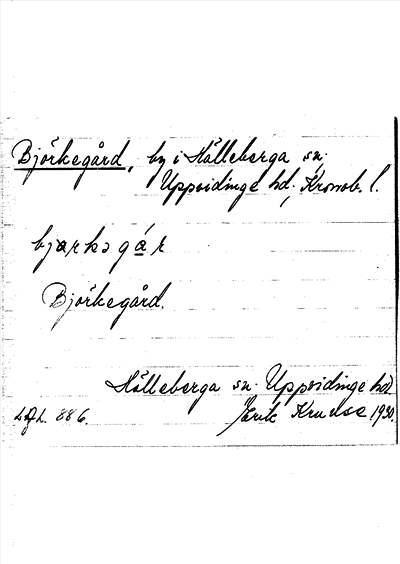 Björkegård, by i Hälleberga sn.
Uppvidinge hd, Kronob. l.
bjarkəgár
Björkegård.
Hälleberga sn. Uppvidinge hd
L.A.L. 886.
Erik Kruuse 1930.